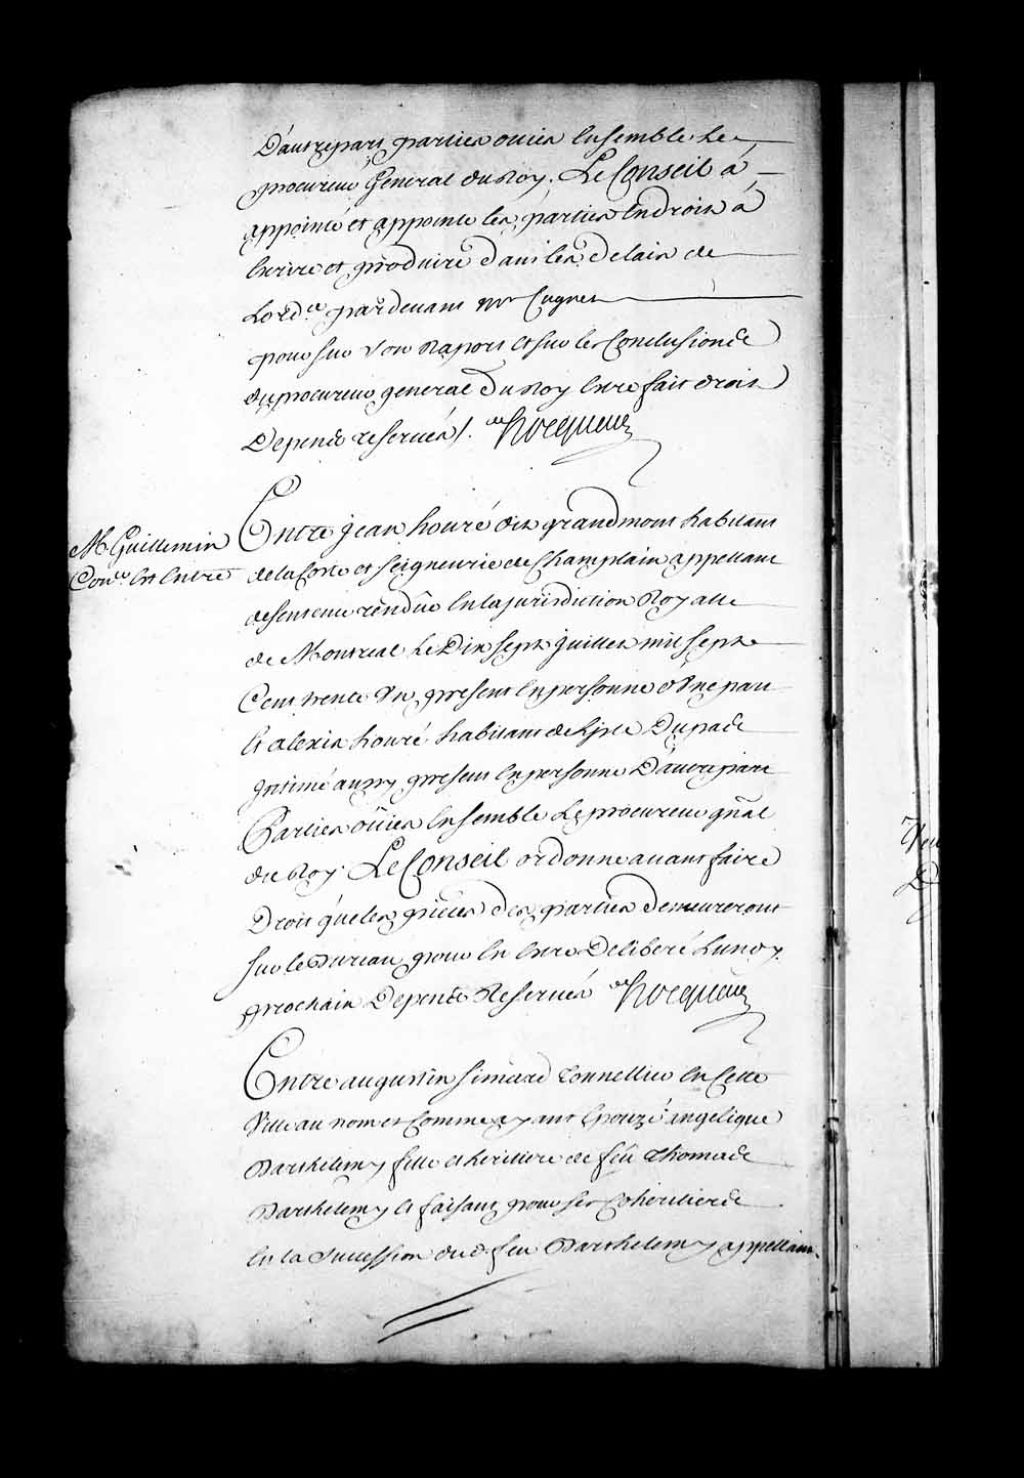 D'autrepart parties ouies Ensemble Le
procureur General du Roy. Le Conseil à
appointé et appointe les parties Endroit à
Ecrire et produire dans les delais de
Lordce pardevant Mr Cugnet
pour sur Son Raport et sur les Conclusions
du procureur general du Roy Etre fait droit
Depens reservés /. Hocquart
Entre jean houré dit grandmont habitant
de la Coste et Seigneurie de Champlain appellant
de sentence rendüe En la jurisdiction Royalle
de Montreal Le Dix sept juillet mil sept
Cent trente Un present En personne d'Une part
Et alexis houré habitant de L'isle Dupads
Intimé aussy present En personne D'autre part
Parties oüies Ensemble Le procureur gñal
du Roy. Le Conseil ordonne avant faire
Droit que les pieces des parties Demeureront
sur le Bureau pour En Etre Deliberé Lundy
prochain Depens Reservés Hocquart
M. Guillemin
Conr. Est Entré
Entre augustin Simard Tonnellier En Cette
Ville au nom et Comme ayant Epouzé angelique
Barthelemy fille et heritiere de feü Thomas
Barthelemy Et faisant pour ses Coheritiers
En la Succession dud. feu Barthelemy appellant